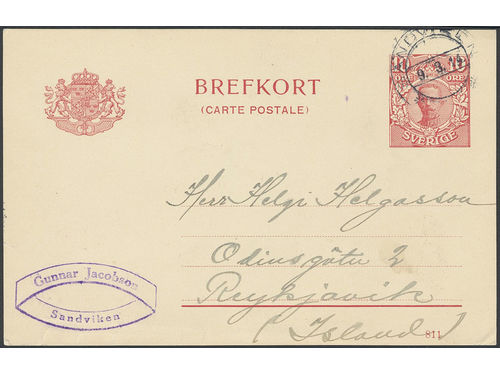 BREFKORT
(CARTE POSTALE)
SANDVIKEN
9. 3. 14
10
ÖRE ÖRE
SVERIGE
Herr Helgi Helgasson
Odinsgötu 2
Reykjavik
(Island)
Gunnar Jacobson
Sandviken
811